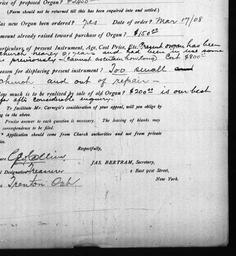 Price of proposed Organ? $2400
(Form should not be returned till this has been required and settled.)
Has new Organ been ordered? yes Date of order? Mar 17/08
Amount already raised toward purchase of Organ? $1500
Particulars of present Instrument, Age, Cost Price, &c. Present organ has been
church nearly 8 years and had been in use some
previously - Cannot ascertain how long Cost $800
Reason for displacing present instrument? Too small
church and out of repair -
How much is to be realized by sale of old Organ? $200 is our best
offer after considerable enquiry.
To facilitate Mr. Carnegie's consideration of your appeal, will you oblige by
filling in the above.
Precise answer to each question is necessary. The leaving of blanks may
correspondence to be filed.
Application should come from Church authorities and not from private
individuals.
Respectfully,
JAS. BERTRAM, Secretary,
Designation Treasurer 2 East 91st Street,
Trenton Ont New York.